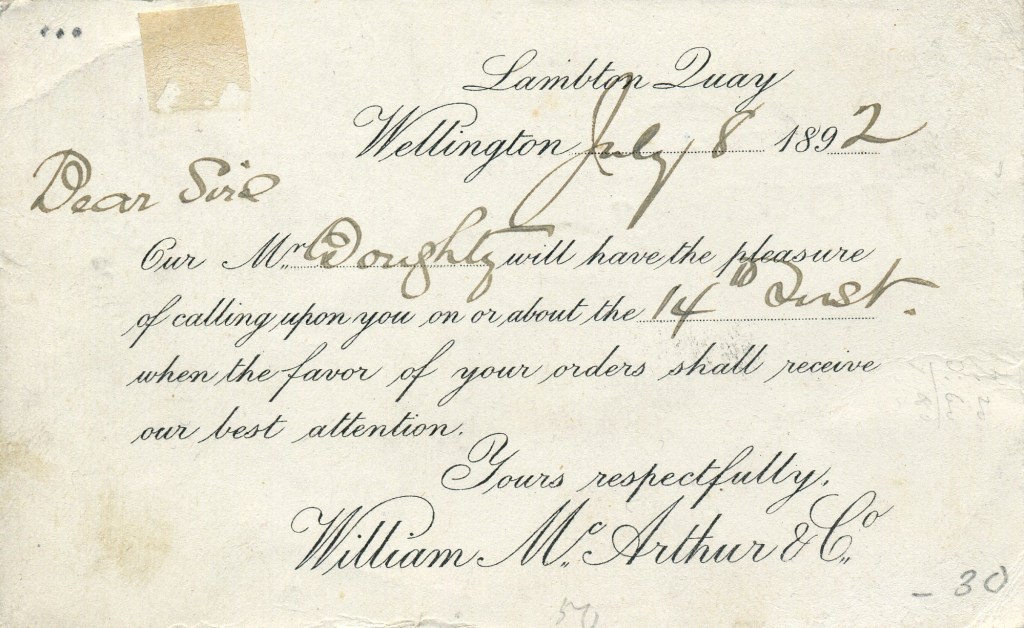 Lambton Quay
Wellington July 8 1892
Dear Sirs
Our Mr. Doughty will have the pleasure
of calling upon you on or about the 14th Inst.
when the favor of your orders shall receive
our best attention.
Yours respectfully,
William Mc. Arthur & Co.
- 30
50